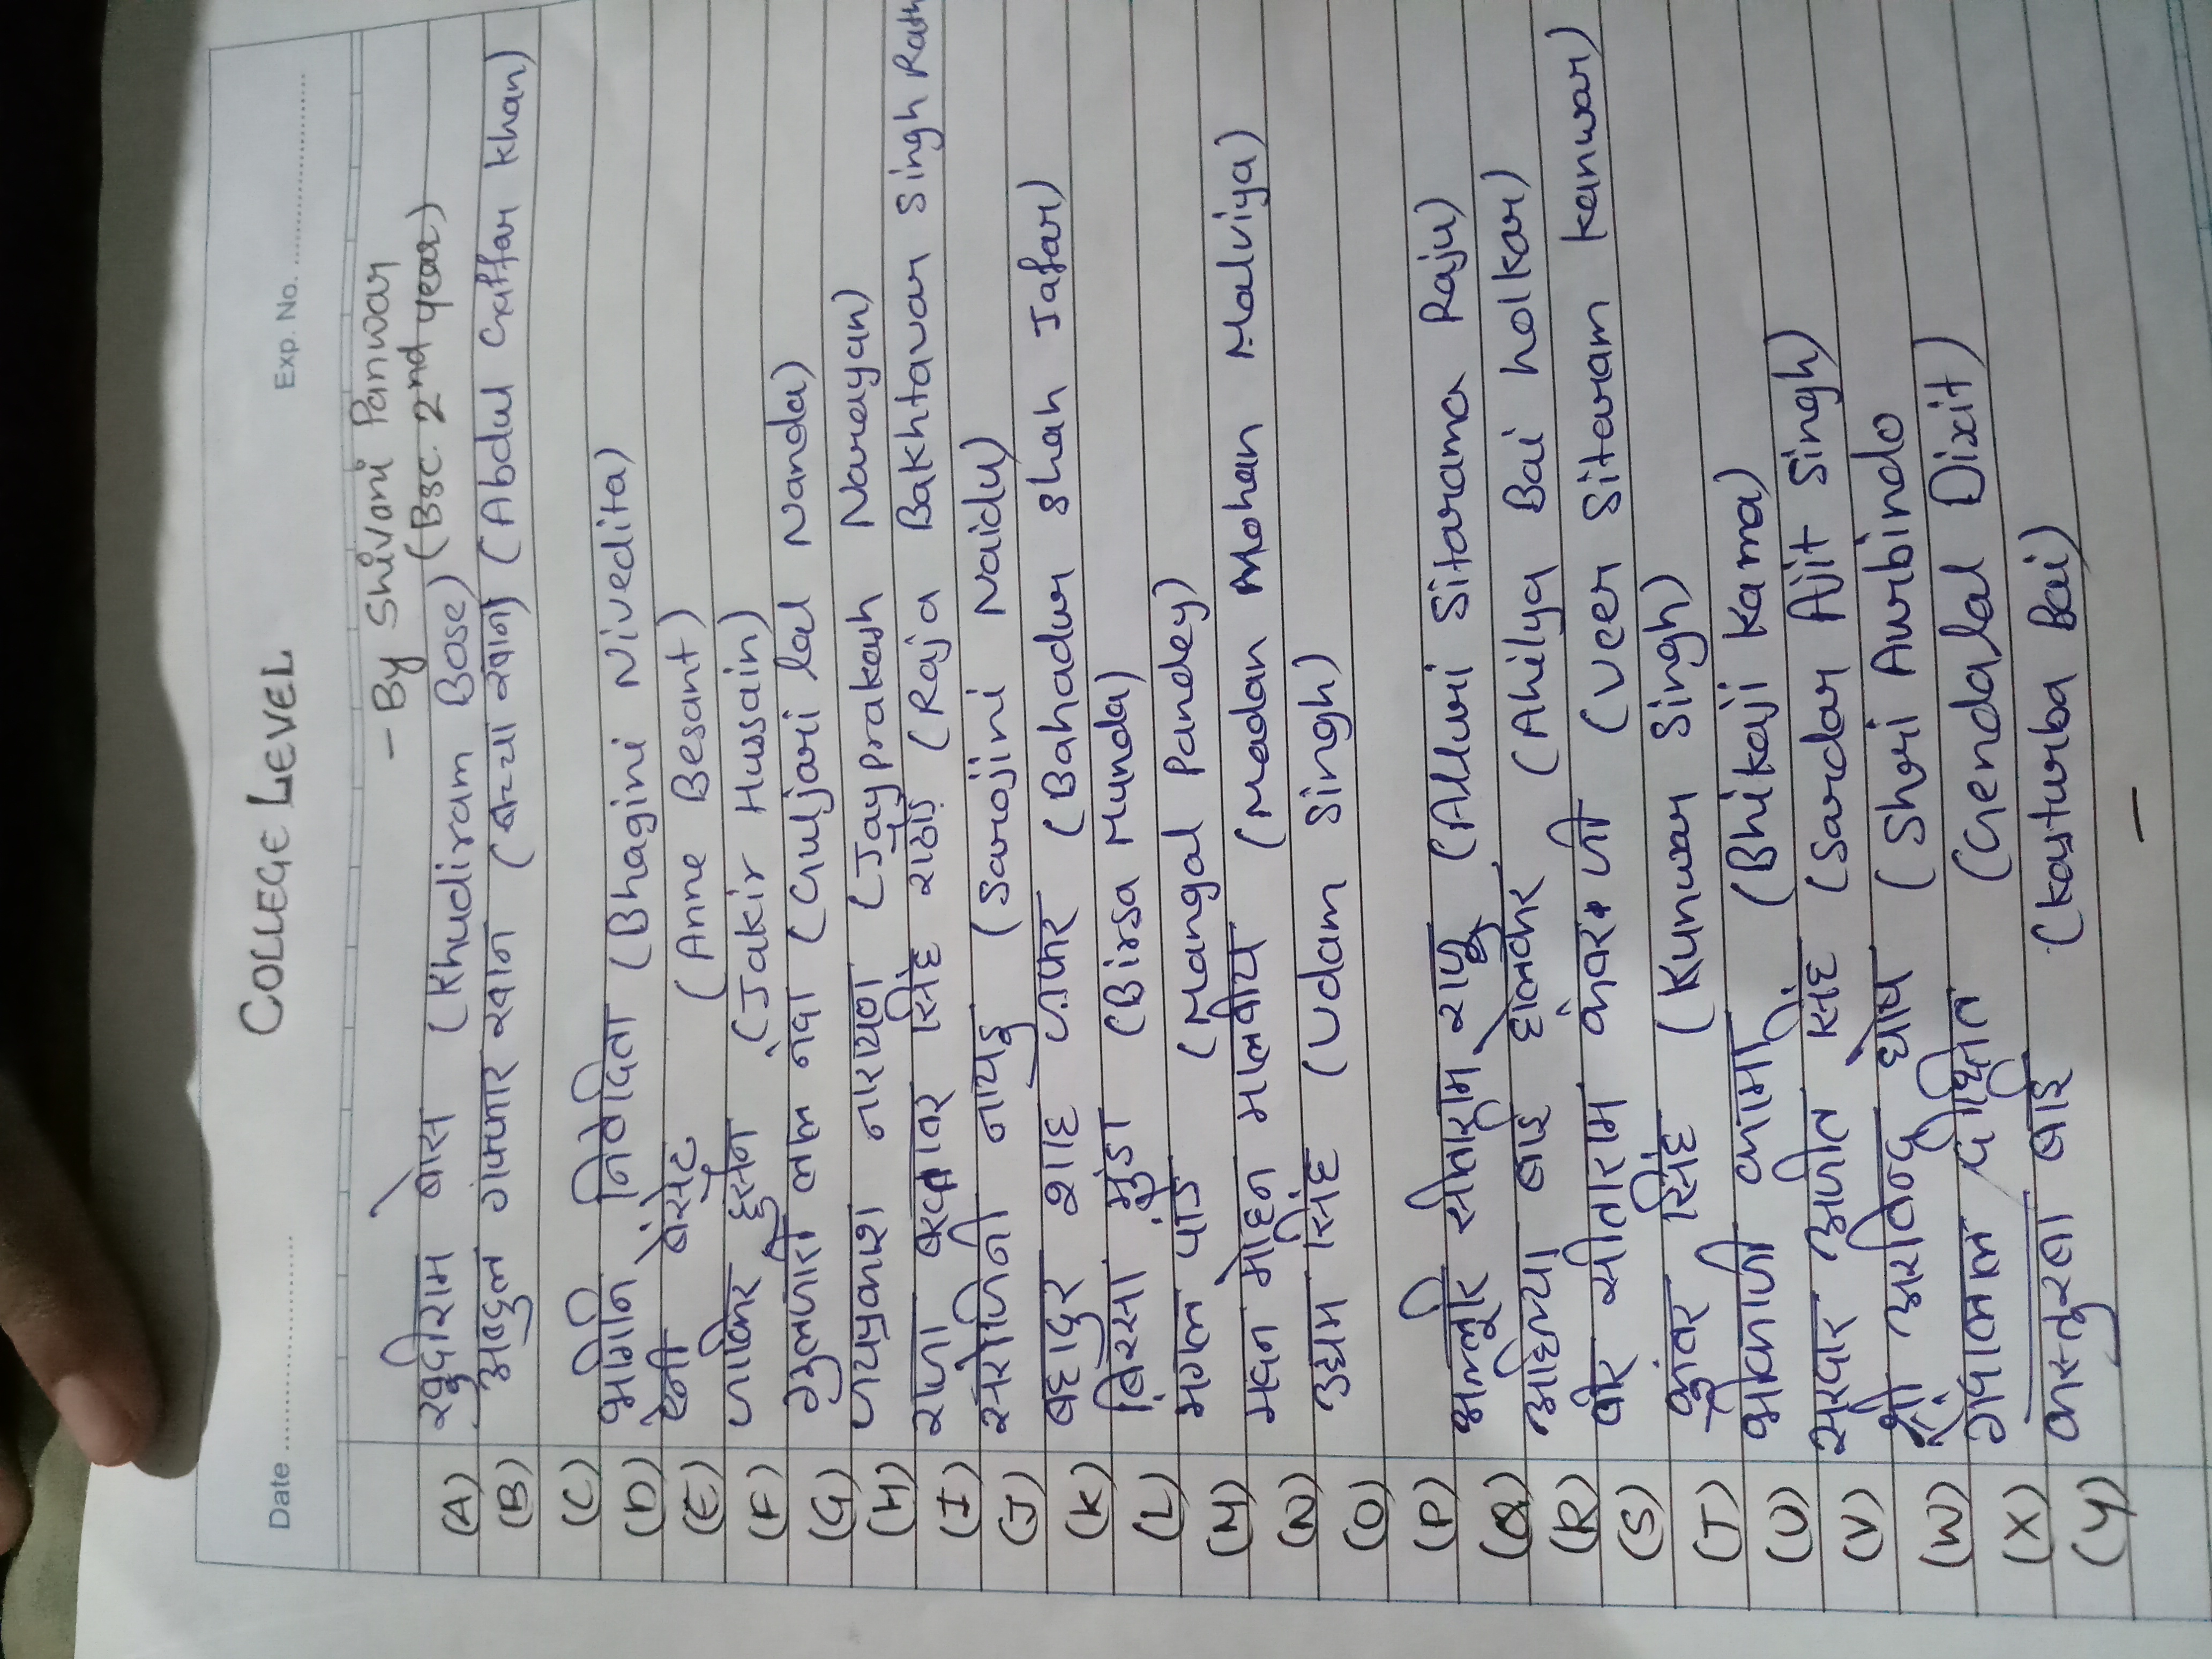 COLLEGE LEVEL
Date ............ Exp. No. ............
- By Shivani Panwar
(Bsc. 2nd year)
(A) खुदीराम बोस (Khudiram Bose)
(B) अब्दुल गफ्फार खान (बच्चा खान) (Abdul Gaffar Khan)
(C)
(D) भगिनि निवेदिता (Bhagini Nivedita)
(E) ऐनी बेसेंट (Anne Besant)
(F) जाकिर हुसैन (Jakir Hussain)
(G) गुलजारी लाल नंदा (Guljari lal Nanda)
(H) जयप्रकाश नारायण (Jay Prakash Narayan)
(I) राजा बख्तावर सिंह राठौड़ (Raja Bakhtavar Singh Rath
(J) सरोजिनी नायडू (Sarojini Naidu)
(K) बहादुर शाह ज़फर (Bahadur Shah Jafar)
(L) बिरसा मुंडा (Birsa Munda)
(M) मंगल पांडे (Mangal Pandey)
(N) मदन मोहन मालवीय (Madan Mohan Malviya)
(O) उधम सिंह (Udam Singh)
(P) अल्लूरि सीताराम राजू (Alluri Sitarama Raju)
(Q) अहिल्या बाई होलकर (Ahilya Bai holkar)
(R) वीर सीताराम कंवर जी (Veer Sitaram kanwar)
(S) कुंवर सिंह (Kunwar Singh)
(T) भीकाजी कामा (Bhikaji Kama)
(U) सरदार अजीत सिंह (Sardar Ajit Singh)
(V) श्री अरविन्द घोष (Shri Aurbindo
(W) गेंदालाल दीक्षित (Gendalal Dixit)
(X) कस्तुरबा बाई (Kasturba Bai)
(Y)